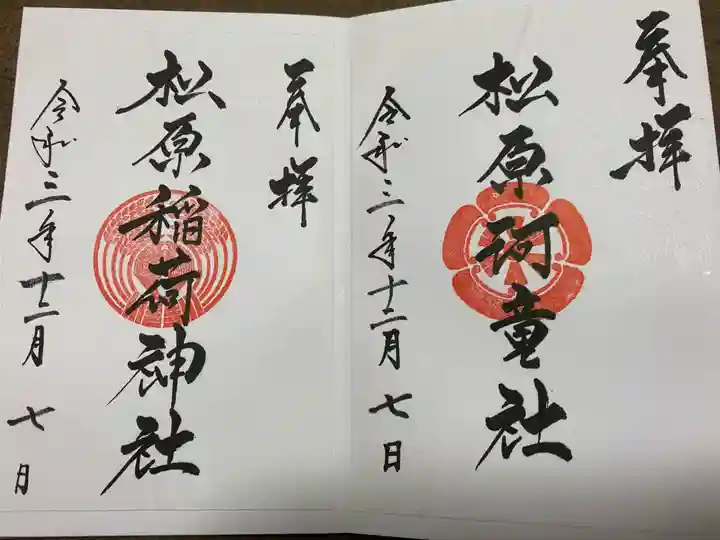 奉拝
松原珂童社
令和三年十二月七日
奉拝
松原稲荷神社
令和三年十二月七月